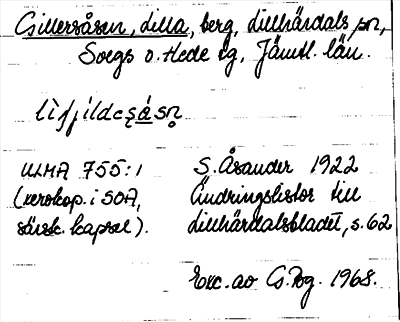 Gillersåsen, Lilla, berg, Lillhärdals sn,
Svegs o. Hede tg, Jämtl. län.
ULMA 755:1 S. Åsander 1922
(xerokop. i SOA, Ändringslistor till
särsk. kapsel). Lillhärdalsbladet, s. 62
Exc. av G. Pg. 1968.